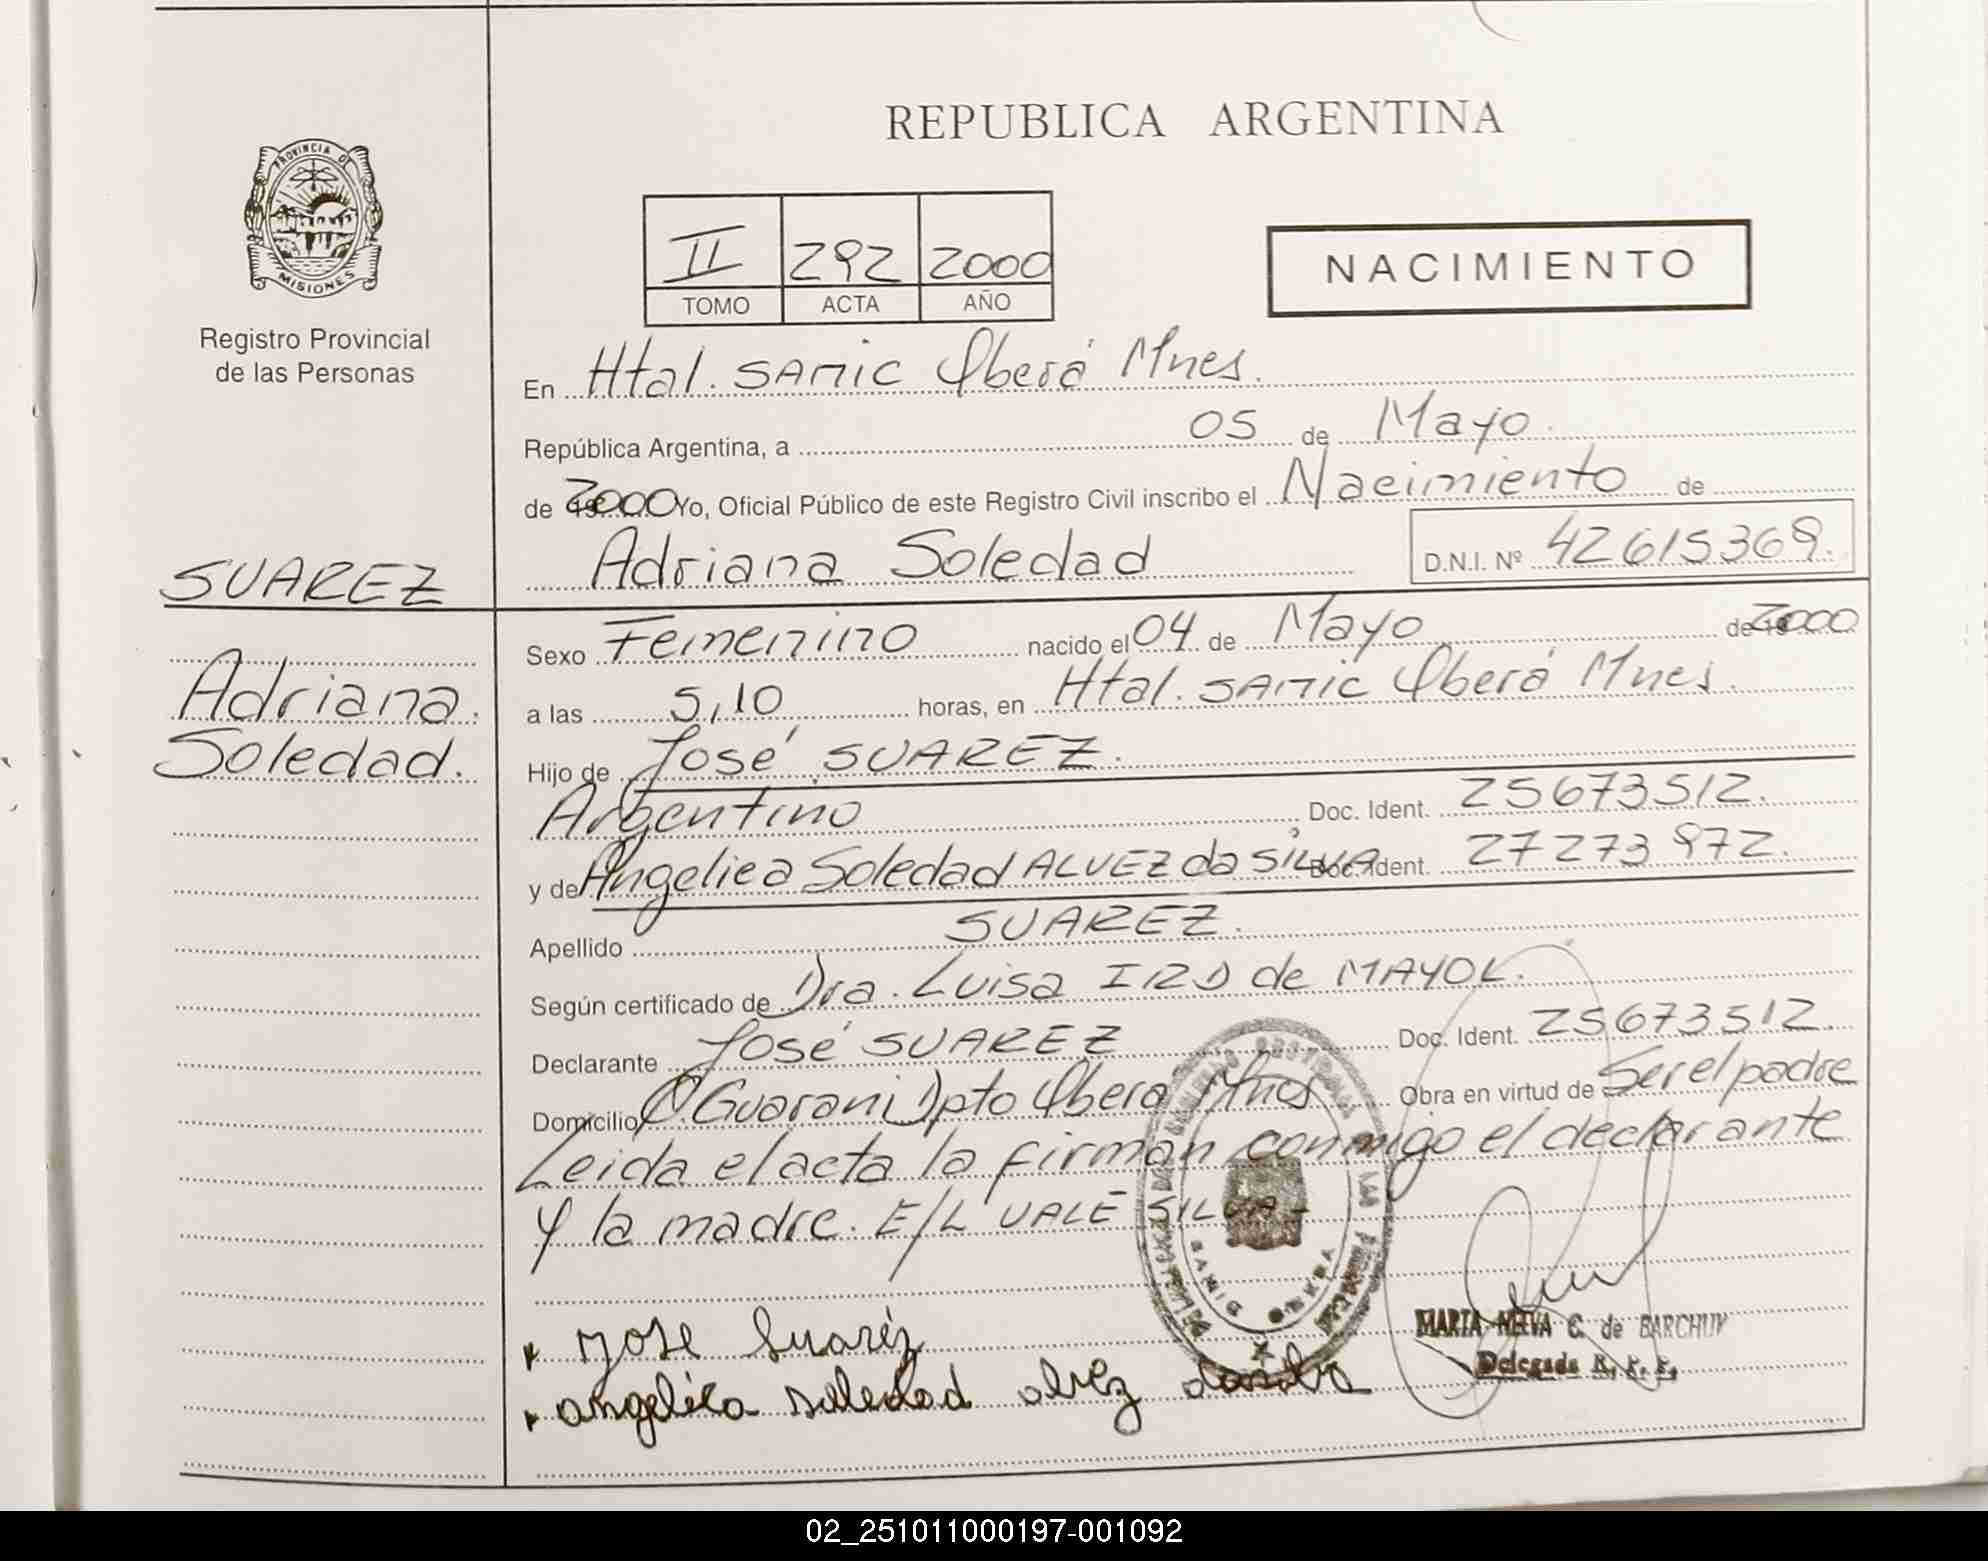 REPUBLICA ARGENTINA
PROVINCIA DE
MISIONES
Registro Provincial
de las Personas
II 292 2000
TOMO ACTA AÑO
NACIMIENTO
En Htal. SAMIC Oberá Mnes.
República Argentina, a 05 de Mayo.
de 2000 Yo, Oficial Público de este Registro Civil inscribo el Nacimiento de
Adriana Soledad D.N.I. Nº 42615369.
SUAREZ
Adriana.
Soledad.
Sexo Femenino nacido el 04 de Mayo de 2000
a las 5,10 horas, en Htal. SAMIC Oberá Mnes.
Hijo de José SUAREZ.
Argentino, Doc. Ident. 25673512.
y de Angelica Soledad ALVEZ da SILVA Doc. Ident. 27273972.
Apellido SUAREZ.
Según certificado de Dra. Luisa IRD de MAYOL.
Declarante José SUAREZ Doc. Ident. 25673512.
Domicilio Guarani Dpto Oberá Mnes Obra en virtud de Ser el padre
Leida el acta la firman conmigo el declarante
y la madre. E/L VALE SILVA-
Jose Suaréz
angelica soledad alvez
MARTA NEIVA C. de BARCHUV
Delegada R. P. P.
02_251011000197-001092